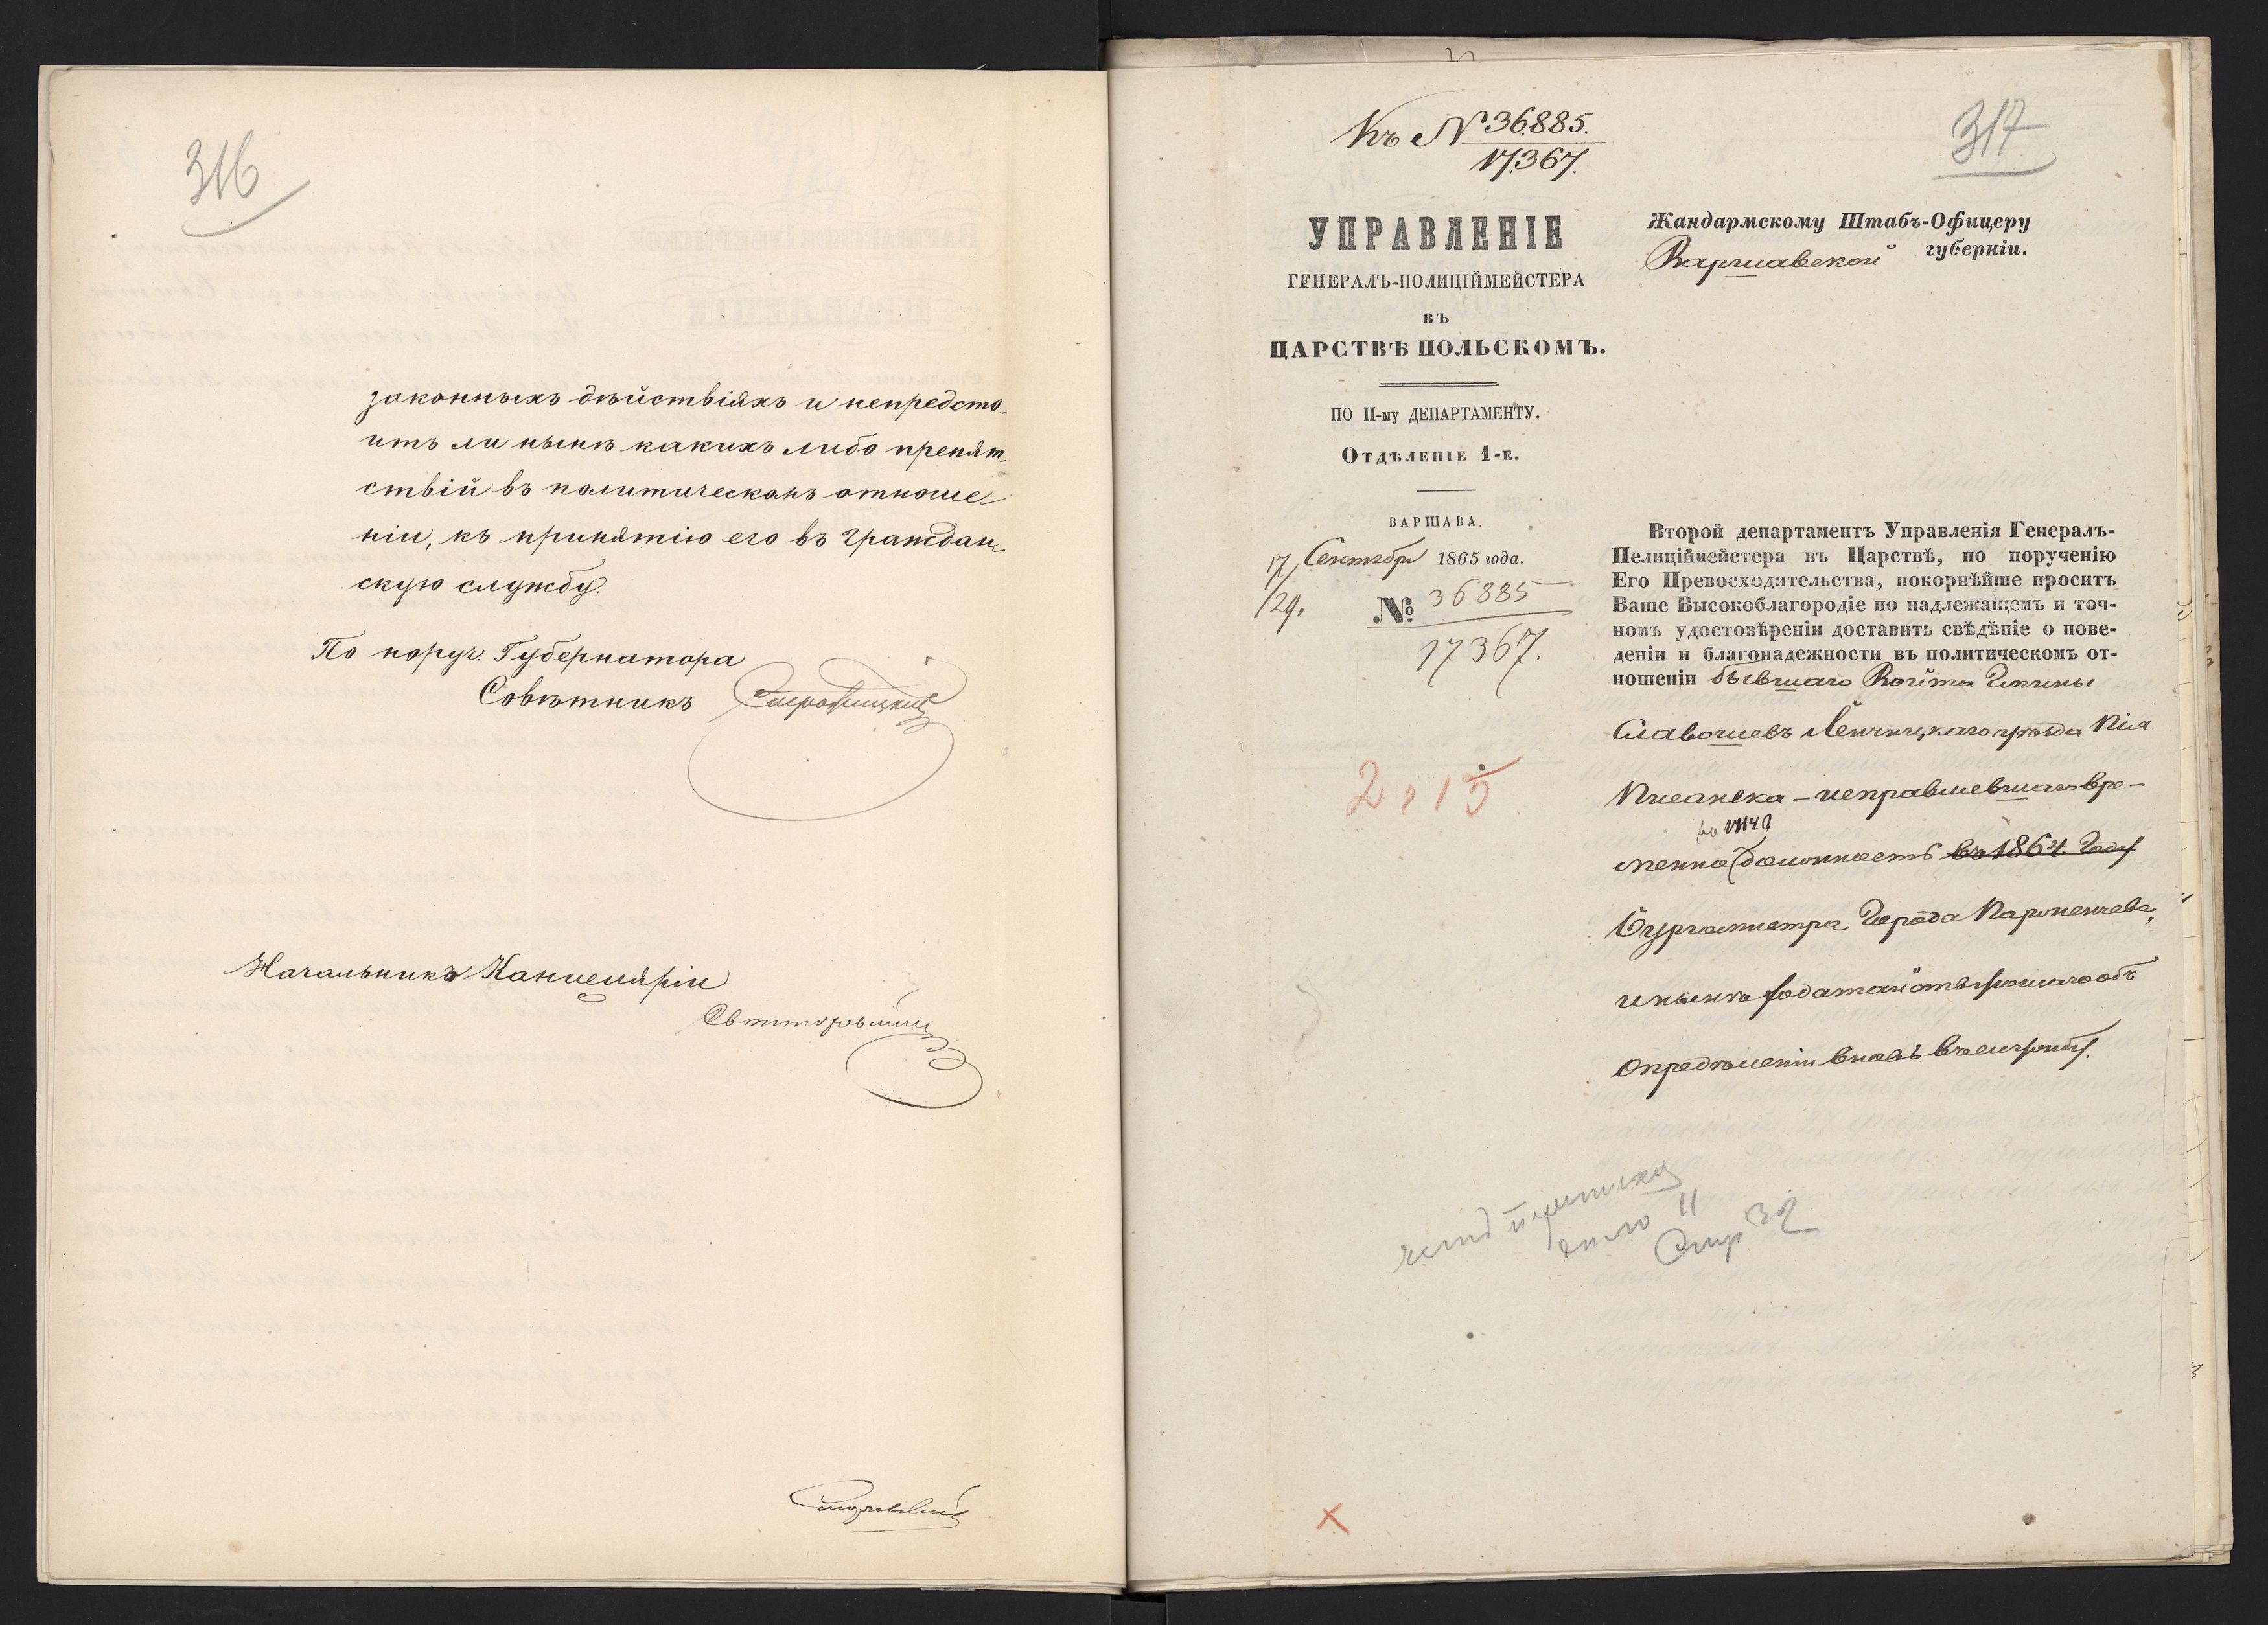 316
законныхъ дѣйствіяхъ и непредсто-
итъ ли нынѣ какихъ либо препят-
ствій въ политическомъ отноше-
ніи, къ принятію его въ граждан-
скую службу.
По поруч. Губернатора
Совѣтникъ
Начальникъ Канцеляріи
317
Къ N 36885.
17367.
УПРАВЛЕНІЕ
ГЕНЕРАЛЪ-ПОЛИЦІЙМЕЙСТЕРА
ВЪ
ЦАРСТВѢ ПОЛЬСКОМЪ.
ПО II-му ДЕПАРТАМЕНТУ.
Отдѣленіе 1-е.
ВАРШАВА.
17/29 Сентября 1865 года.
№ 36885
17367.
2 15
Жандармскому Штабъ-Офицеру
Варшавской губерніи.
Второй департаментъ Управленія Генералъ-
Пелиціймейстера въ Царствѣ, по порученію
Его Превосходительства, покорнѣйше проситъ
Ваше Высокоблагородіе по надлежащемъ и точ-
номъ удостовѣреніи доставить свѣдѣніе о пове-
деніи и благонадежности въ политическомъ от-
ношеніи бывшаго Войта Гмины
Славошевъ Ленчицкаго уѣзда
исправлявшаго вре-
менно должность въ 1864 Году
Бургомистра Города
и нынѣ ходатайствующаго объ
опредѣленіи вновь въ службу.